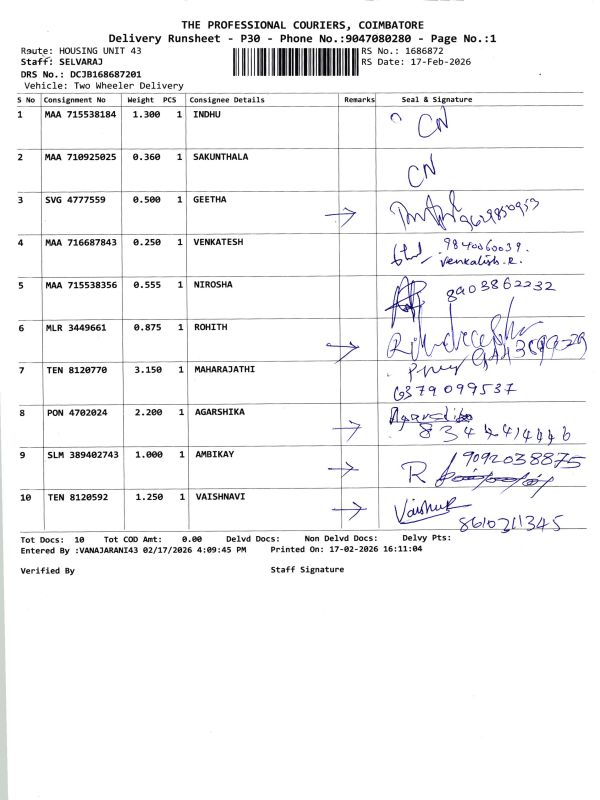 THE PROFESSIONAL COURIERS, COIMBATORE
Delivery Runsheet - P30 - Phone No.:9047080280 - Page No.:1
Route: HOUSING UNIT 43 RS No.: 1686872
Staff: SELVARAJ RS Date: 17-Feb-2026
DRS No.: DCJB168687201
Vehicle: Two Wheeler Delivery
S No Consignment No Weight PCS Consignee Details Remarks Seal & Signature
1 MAA 715538184 1.300 1 INDHU CN
2 MAA 710925025 0.360 1 SAKUNTHALA CN
3 SVG 4777559 0.500 1 GEETHA
4 MAA 716687843 0.250 1 VENKATESH 9840060039.
venkatish.R.
5 MAA 715538356 0.555 1 NIROSHA 8903862232
6 MLR 3449661 0.875 1 ROHITH
7 TEN 8120770 3.150 1 MAHARAJATHI
6379099537
8 PON 4702024 2.200 1 AGARSHIKA
9 SLM 389402743 1.000 1 AMBIKAY 9092038875
R
10 TEN 8120592 1.250 1 VAISHNAVI
8610211345
Tot Docs: 10 Tot COD Amt: 0.00 Delvd Docs: Non Delvd Docs: Delvy Pts:
Entered By :VANAJARANI43 02/17/2026 4:09:45 PM Printed On: 17-02-2026 16:11:04
Verified By Staff Signature